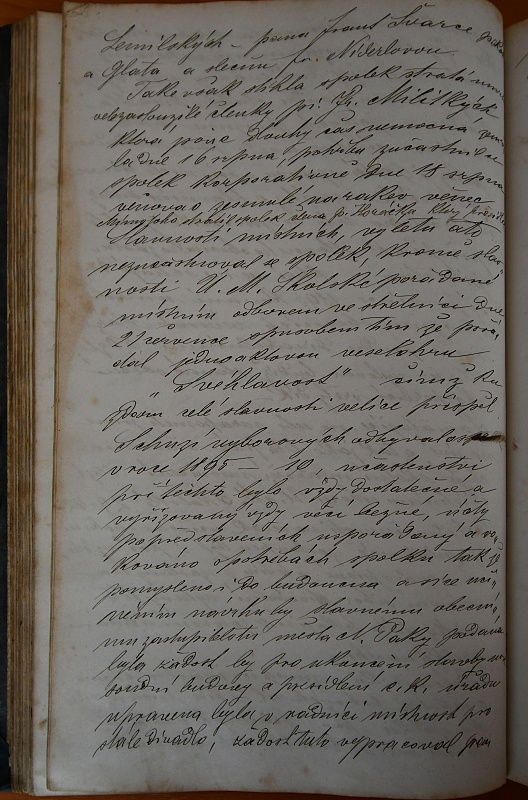 Semilských – pana Frant. Švarce
a Gláta a slečnu Niderlovou
Také však stihla spolek ztráta
velezasloužilé členky př. Fr. Militkých
která po dlouhý čas nemocna
la dne 16 srpna, pohřbu zúčastnil se
spolek korporativně dne 18 srpna
věnovav zesnulé na rakev věnec
spolek člena p. Horáčka
Slavností místních, výletů atd
nezúčastňoval se spolek, kromě slav-
nosti Ú. M. Školské pořádané
místním odborem ve střelnici dne
21 července spůsobem tím že pořá-
dal jednoaktovou veselohru
"Svéhlavost" čímž ku
zdaru celé slavnosti velice přispěl
Schůzí výborových odbývalo se
v roce 1895 – 10, účastenství
při těchto bylo vždy dostatečné a
vyřizovány vždy věci běžné, účty
po představeních uspořádány a
kováno o potřebách spolku tak
pomýšleno i do budoucna a sice uči-
něním návrhu by slavnému obecní-
mu zastupitelstvu města N. Paky podána
byla žádost by po ukončení stavby
soudní budovy a přesídlení c. k. úřadu
upravena byla v radnici místnost pro
stálé divadlo, žádost tuto vypracoval pan